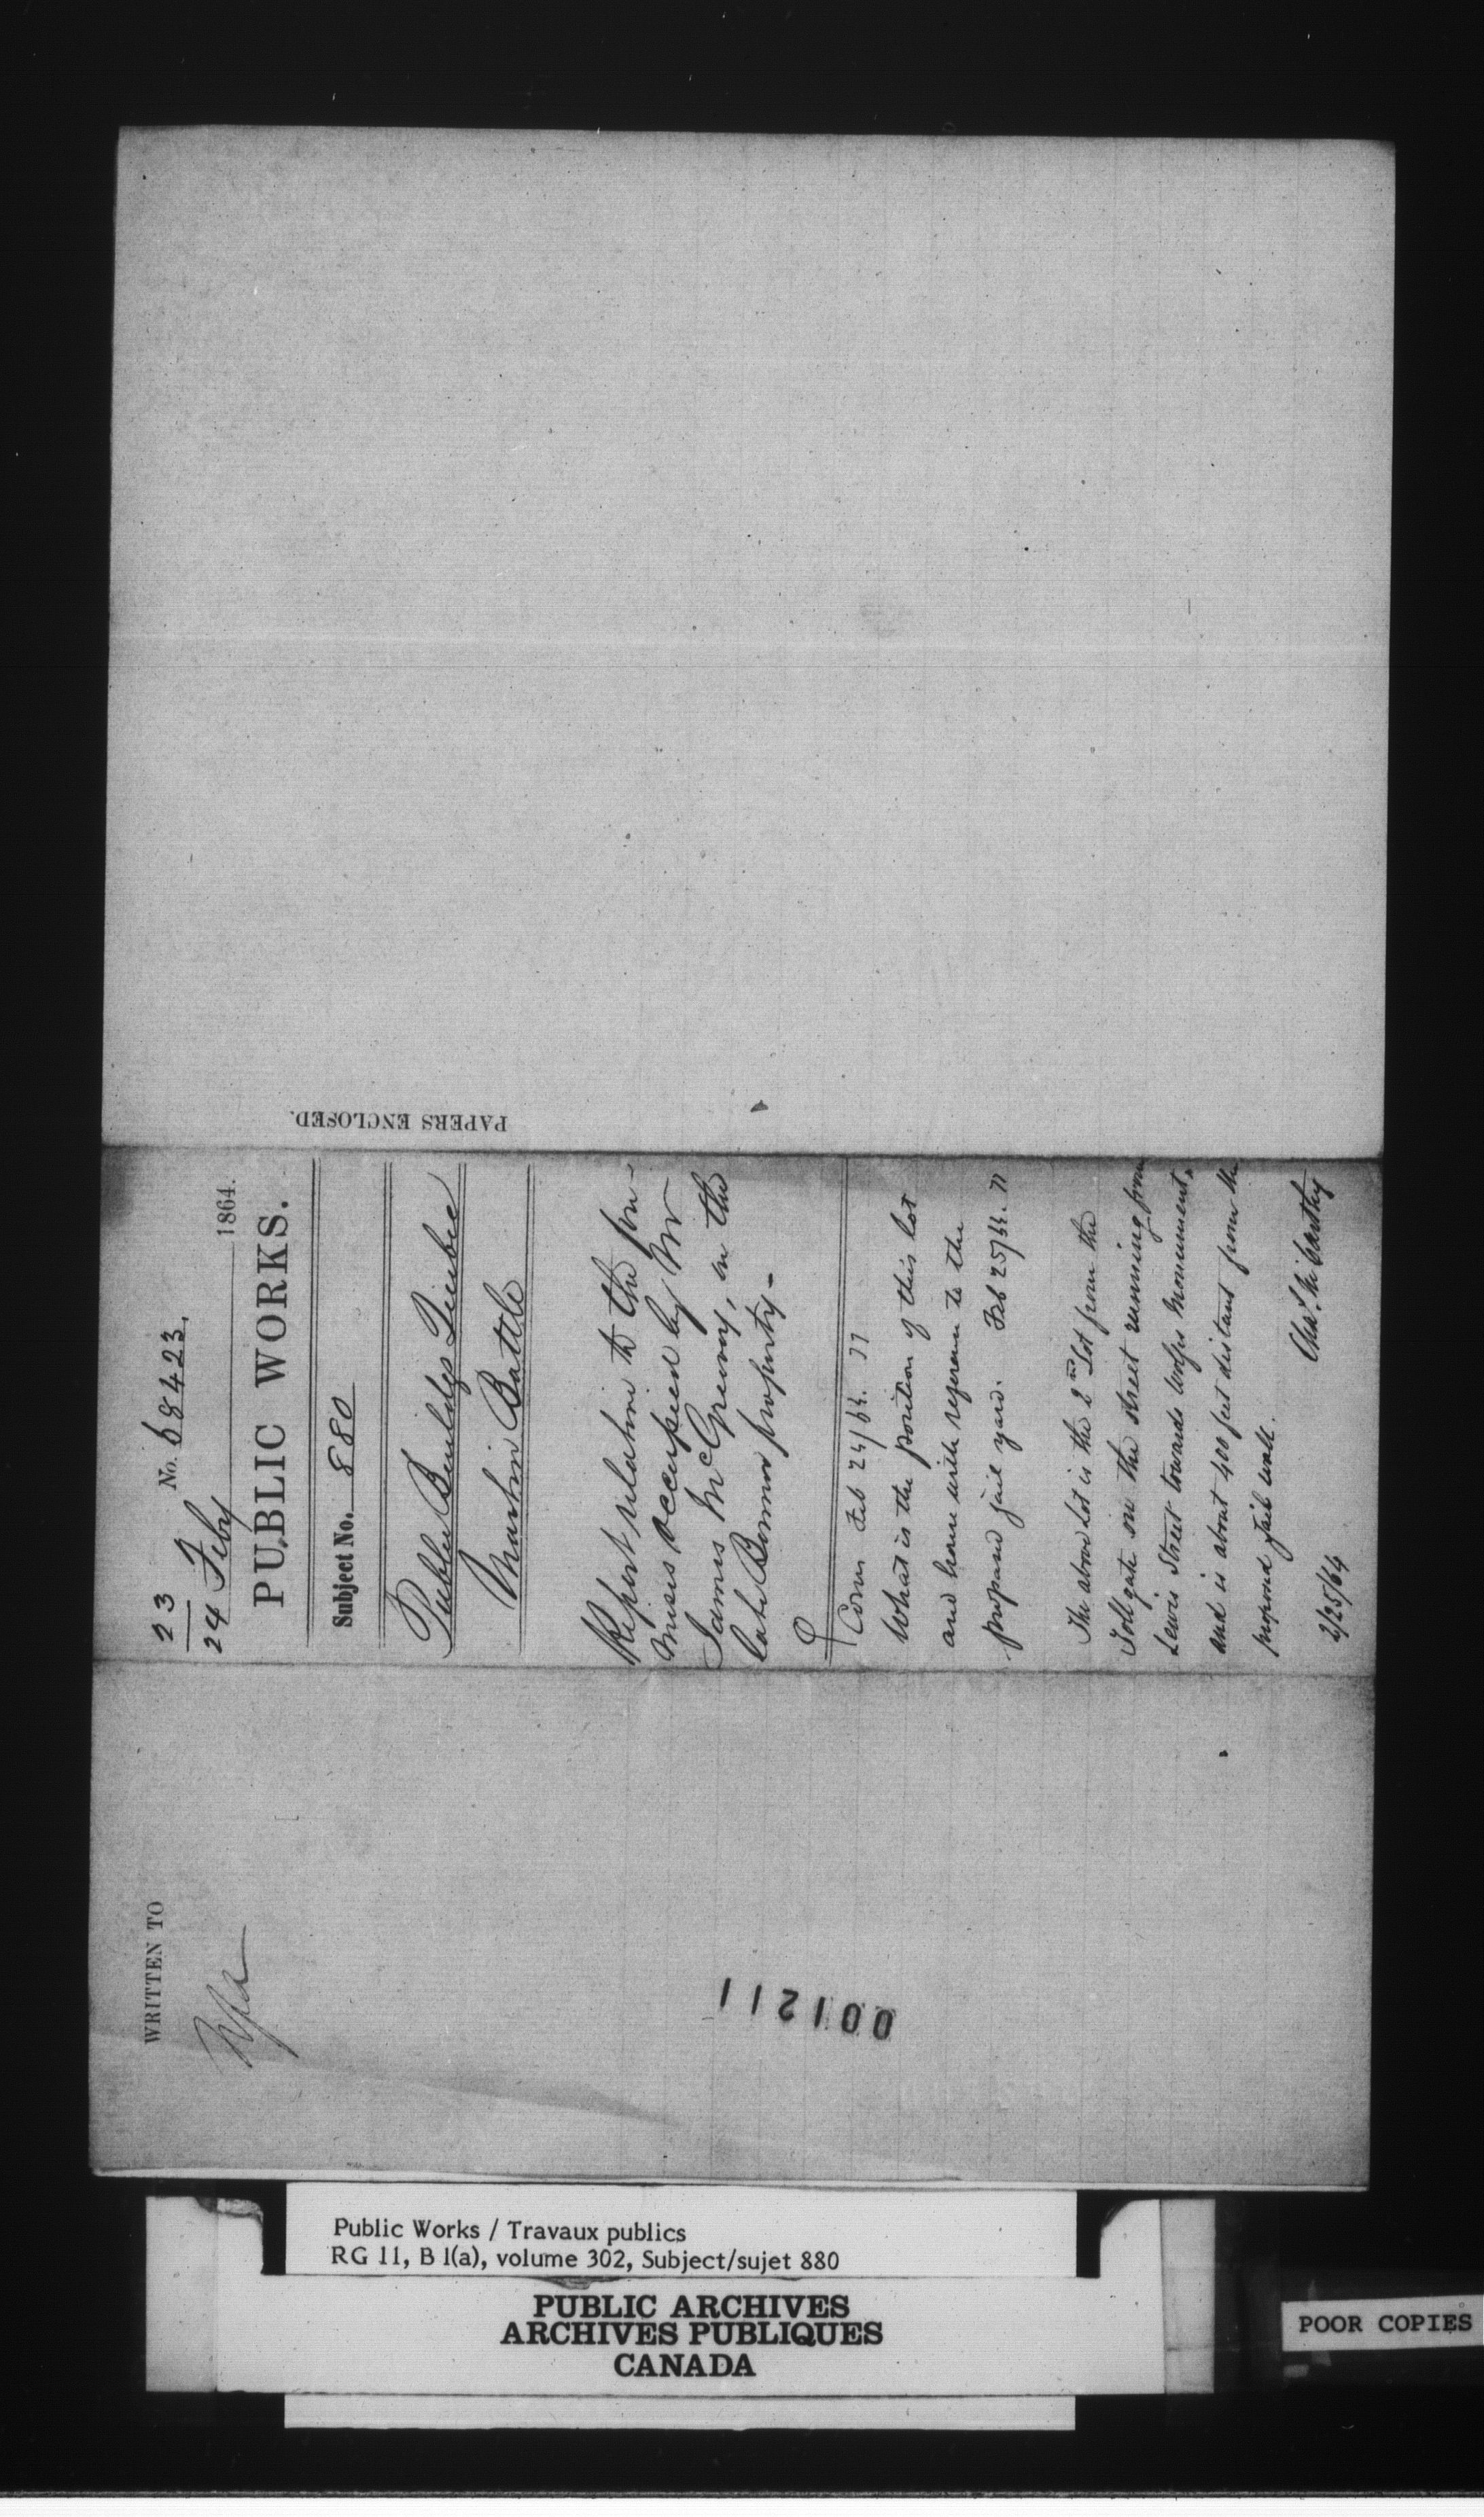 PAPERS ENCLOSED.
23 No. 68423.
24 Feby 1864.
PUBLIC WORKS.
Subject No. 880
Public Buildgs Quebec
Martin Battle
Report relative to the pre-
mises occupied by Mr
James McGreevy, on the
late Bonner property-
Com Feb 24/64.
What is the position of this lot
and house with reference to the
proposed jail yard. Feb 25/64.
The above Lot is the 2nd Lot from the
Toll gate on the street running from
Lewis Street towards Wolfes Monument,
and is about 400 feet distant from the
proposed Jail wall.
Chs. McCarthy
2/25/64
WRITTEN TO
001211
Public Works / Travaux publics
RG 11, B 1(a), volume 302, Subject/sujet 880
PUBLIC ARCHIVES
ARCHIVES PUBLIQUES
CANADA
POOR COPIES